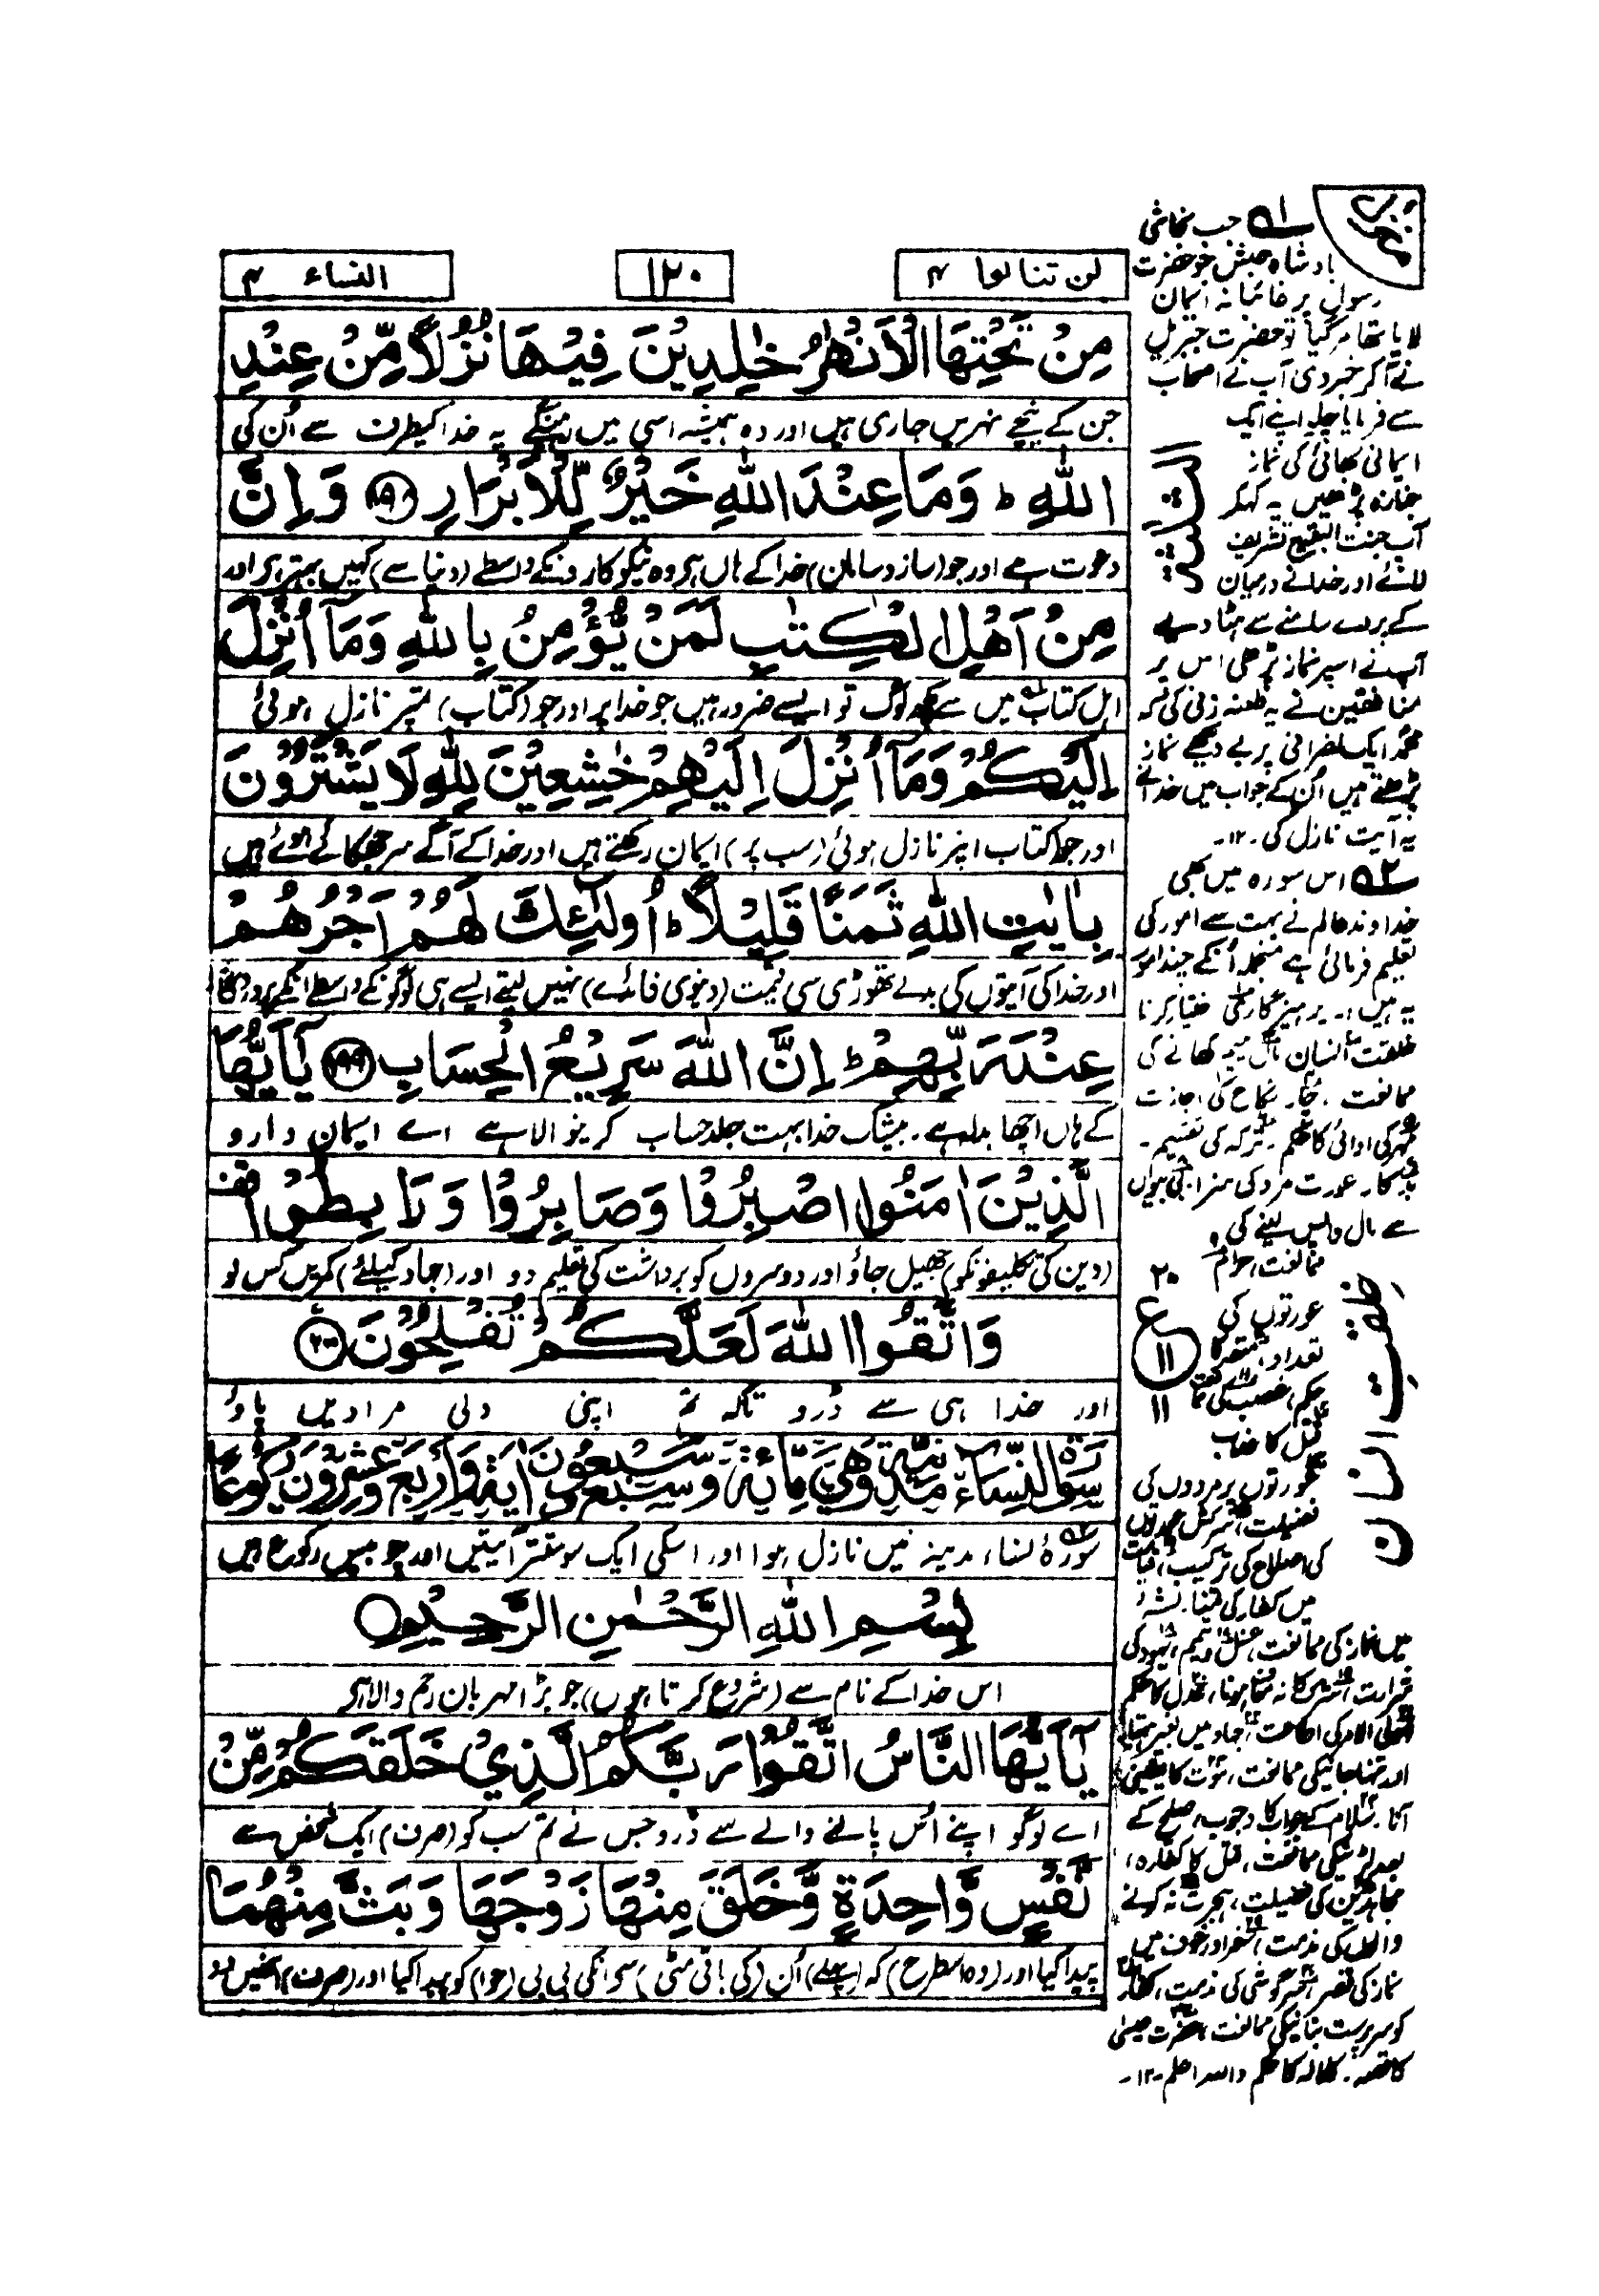 لن تنالوا ۴
۱۲۰
النساء ۴
مِنْ تَحْتِهَا الْاَنْهٰرُ خٰلِدِيْنَ فِيْهَا نُزُلًا مِّنْ عِنْدِ
جن کے نیچے نہریں جاری ہیں اور وہ ہمیشہ اسی میں رہینگے یہ خدا کیطرف سے اُن کی
اللّٰهِ ؕ وَمَا عِنْدَ اللّٰهِ خَيْرٌ لِّلْاَبْرَارِ ۱۹۸ وَاِنَّ
دعوت ہے اور جو (ساز و سامان) خدا کے ہاں ہر وہ نیکو کارونکے واسطے (دنیا سے) کہیں بہتر ہر اور
مِنْ اَهْلِ الْكِتٰبِ لَمَنْ يُّؤْمِنُ بِاللّٰهِ وَمَآ اُنْزِلَ
اہل کتاب میں سے کچھ لوگ تو ایسے ضرور ہیں جو خدا پر اور جو (کتاب) تمپر نازل ہوئی
اِلَيْكُمْ وَمَآ اُنْزِلَ اِلَيْهِمْ خٰشِعِيْنَ لِلّٰهِ لَا يَشْتَرُوْنَ
اور جو کتاب اپنر نازل ہوئی (سب پر) ایمان رکھتے ہیں اور خدا کے آگے سر جھکائے ہوئے ہیں
بِاٰيٰتِ اللّٰهِ ثَمَنًا قَلِيْلًا ؕ اُولٰٓئِكَ لَهُمْ اَجْرُهُمْ
اور خدا کی آیتوں کی بدلے تھوڑی سی قیمت (دنیوی فائدے) نہیں لیتے ایسے ہی لوگونکے واسطے انکے پروردگار
عِنْدَ رَبِّهِمْ ؕ اِنَّ اللّٰهَ سَرِيْعُ الْحِسَابِ ۱۹۹ يٰٓاَيُّهَا
کے ہاں اچھا بدلہ ہے۔ بیشک خدا بہت جلد حساب کرنیوالا ہے اے ایمان دارو
الَّذِيْنَ اٰمَنُوا اصْبِرُوْا وَصَابِرُوْا وَرَابِطُوْا قف
(دین کی تکلیفونکو) جھیل جاؤ اور دوسروں کو برداشت کی تعلیم دو اور (جہاد کیلئے) کمریں کس لو
وَاتَّقُوا اللّٰهَ لَعَلَّكُمْ تُفْلِحُوْنَ ۲۰۰
اور خدا ہی سے ڈرو تاکہ تم اپنی دلی مرادیں پاؤ
سُوْرَةُ النِّسَآءِ مَدَنِيَّةٌ وَّهِيَ مِائَةٌ وَّسَبْعٌ وَّسَبْعُوْنَ اٰيَةً وَّاَرْبَعٌ وَّعِشْرُوْنَ رُكُوْعًا
سورۂ نساء مدینہ میں نازل ہوا اور اسکی ایک سو ستتر آیتیں اور چوبیس رکوع ہیں
بِسْمِ اللّٰهِ الرَّحْمٰنِ الرَّحِيْمِ
اس خدا کے نام سے (شروع کرتا ہوں) جو بڑا مہربان رحم والا ہر
يٰٓاَيُّهَا النَّاسُ اتَّقُوْا رَبَّكُمُ الَّذِيْ خَلَقَكُمْ مِّنْ
اے لوگو اپنے اُس پالنے والے سے ڈرو جس نے تم سب کو (صرف) ایک شخص سے
نَّفْسٍ وَّاحِدَةٍ وَّخَلَقَ مِنْهَا زَوْجَهَا وَبَثَّ مِنْهُمَا
پیدا کیا اور (وہ اسطرح) کہ (پہلے) اُن (کی باقی مٹی) سے انکی بی بی (حوا) کو پیدا کیا اور (صرف) انھیں دو
۱ جب نجاشی
بادشاہ حبش جو حضرت
رسول پر غائبانہ ایمان
لایا تھا مرگیا تو حضرت جبریل
نے آ کر خبر دی آپ نے اصحاب
سے فرمایا چلو اپنے ایک
ایمانی بھائی کی نماز
جنازہ پڑھیں یہ کہکر
آپ جنت البقیع تشریف
لائے اور خدا نے درمیان
کے پردے سامنے سے ہٹا دیے
آپ نے اسپر نماز پڑھی اس پر
منافقین نے یہ طعنہ زنی کی کہ
محمد ایک نصرانی پر بے دیکھے نماز
پڑھتے ہیں اُن کے جواب میں خدا نے
یہ آیت نازل کی۔ ۱۲۔
۲ اس سورہ میں بھی
خداوند عالم نے بہت سے امور کی
تعلیم فرمائی ہے منجملہ اُنکے چند امور
یہ ہیں۔ پرہیزگاری اختیار کرنا
خلقت انسان مال یتیم کھانے کی
ممانعت۔ چار نکاح کی اجازت
مہر کی ادائی کا حکم۔ ترکہ کی تقسیم۔
بدکار عورت مرد کی سزا
سے مال واپس لینے کی
ممانعت، حرام
عورتوں کی
تعداد، متعہ کا
حکم، غصب کی
قتل کا عذاب
عورتوں پر مردوں کی
فضیلت، سرکش عورتوں
کی اصلاح کی ترکیب،
میں کفار کی تمنا۔ نشہ
میں نماز کی ممانعت، غسل و تیمم، یہود کی
شرارت، عدل کا حکم
اولی الامر کی اطاعت، جہاد میں
اور تنہا جانیکی ممانعت، موت کا یقینی
آنا۔ سلام کے جواب کا وجوب، صلح کے
بعد لڑنیکی ممانعت، قتل کا کفارہ،
مجاہدین کی فضیلت، ہجرت نہ کرنے
والوں کی مذمت، سفر اور خوف میں
نماز کی قصر، سرگوشی کی مذمت، کفار
کو سرپرست بنانیکی ممانعت، حضرت عیسیٰ
کا قصہ۔ کلالہ کا حکم واللہ اعلم۔ ۱۲۔
۲۰
ع
۱۱
۱۱
خلقتِ انسان